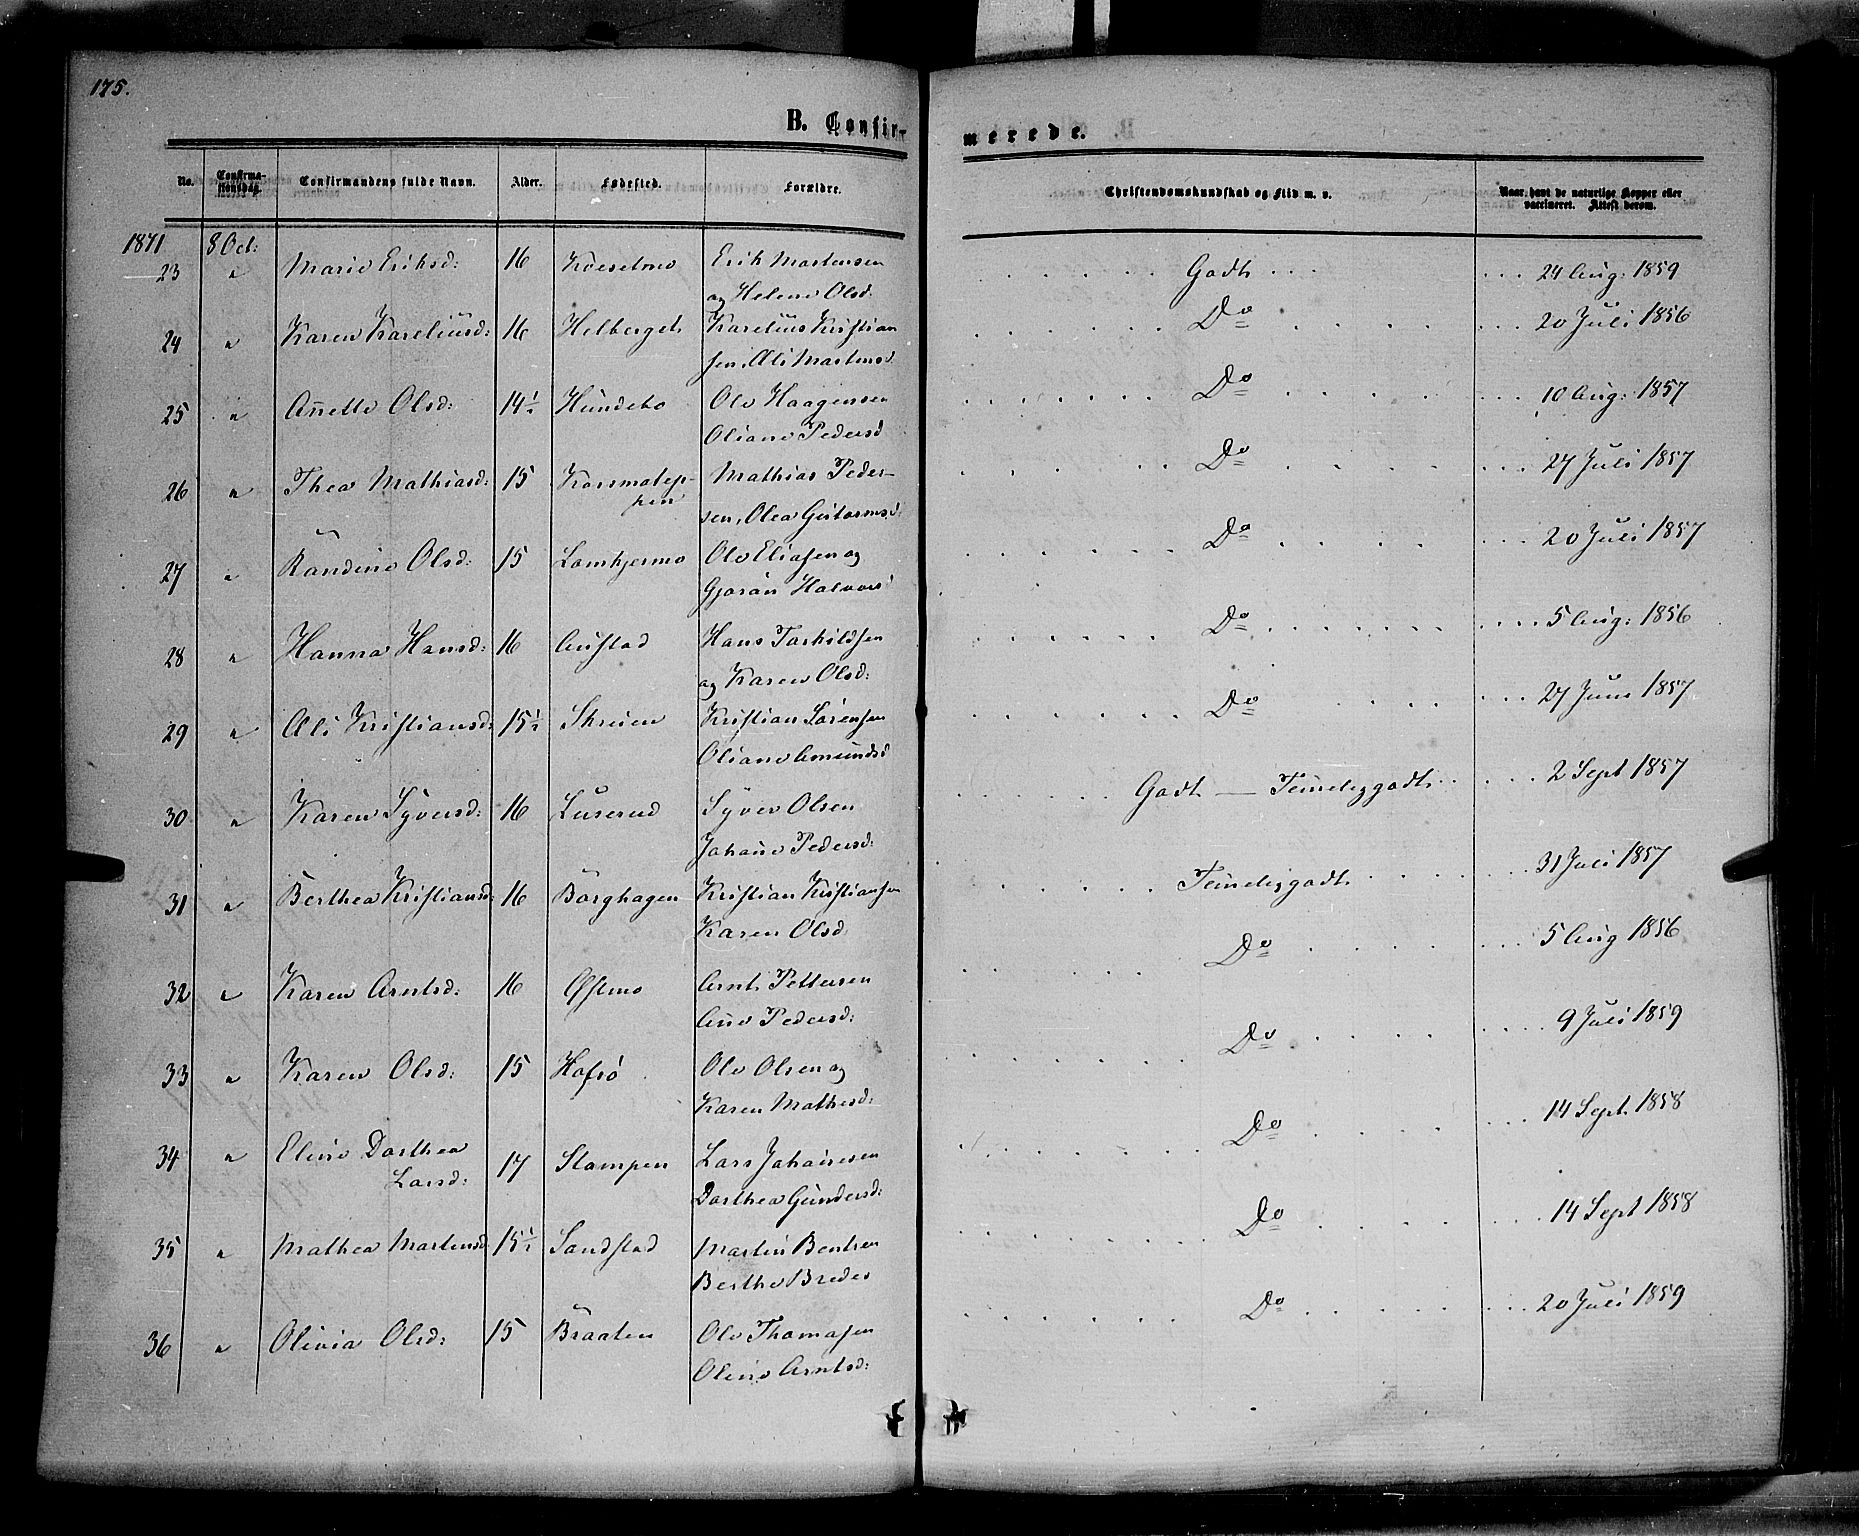 175.
B. Confir-
merede.
No.
Confirma-
tionsdag.
Confirmandens fulde Navn.
Alder.
Fødested.
Forældre.
Christendomskundskab og Flid m. v.
Naar havt de naturlige Kopper eller
vaccineret. Attest derom.
1871 8 Oct:
23 " Marie Eriksd: 16 Erik Martensen Godt 24 Aug: 1859
og Helene Olsd:
24 " Karen Kareliusd: 16 Helberget Karelius Kristian Do 20 Juli 1856
sen, Oli Martensd
25 " Anette Olsd: 14½ Hundebo Ole Haagensen Do 10 Aug: 1857
Oliane Pedersd
26 " Thea Mathiasd: 15 Korsmatep- Mathias Peder- Do 27 Juli 1857
pen sen, Olea
27 " Randine Olsd: 15 Ole Eliasen og Do 20 Juli 1857
Gjoran Halvors
28 " Hanna Hansd: 16 Austad Hans Torkildsen Do 5 Aug: 1856
og Karen Olsd:
29 " Oli Kristiansd: 15½ Skruen Kristian Sørensen Do 27 Juni 1857
Oliane Amundsd
30 " Karen Syversd: 16 Luserud Syver Olsen Godt — Temeliggodt 2 Sept 1857
Johane Pedersd:
31 " Berthea Kristiansd: 16 Borghagen Kristian Kristiansen Temeliggodt 31 Juli 1857
Karen Olsd
32 " Karen Arntsd: 16 Østmo Arnt Pettersen Do 5 Aug 1856
Ane Pedersd:
33 " Karen Olsd: 15 Hofsø Ole Olsen og Do 9 Juli 1859
Karen Mathesd:
34 " Eline Dorthea 17 Stampen Lars Johannesen Do 14 Sept 1858
Larsd: Dorthea Gundersd:
35 " Mathea Martinsd 15½ Sandstad Martin Bentsen Do 14 Sept 1858
Berthe Bredes
36 " Olivia Olsd: 15 Braaten Ole Thomasen Do 20 Juli 1859
Oline Arntsd: